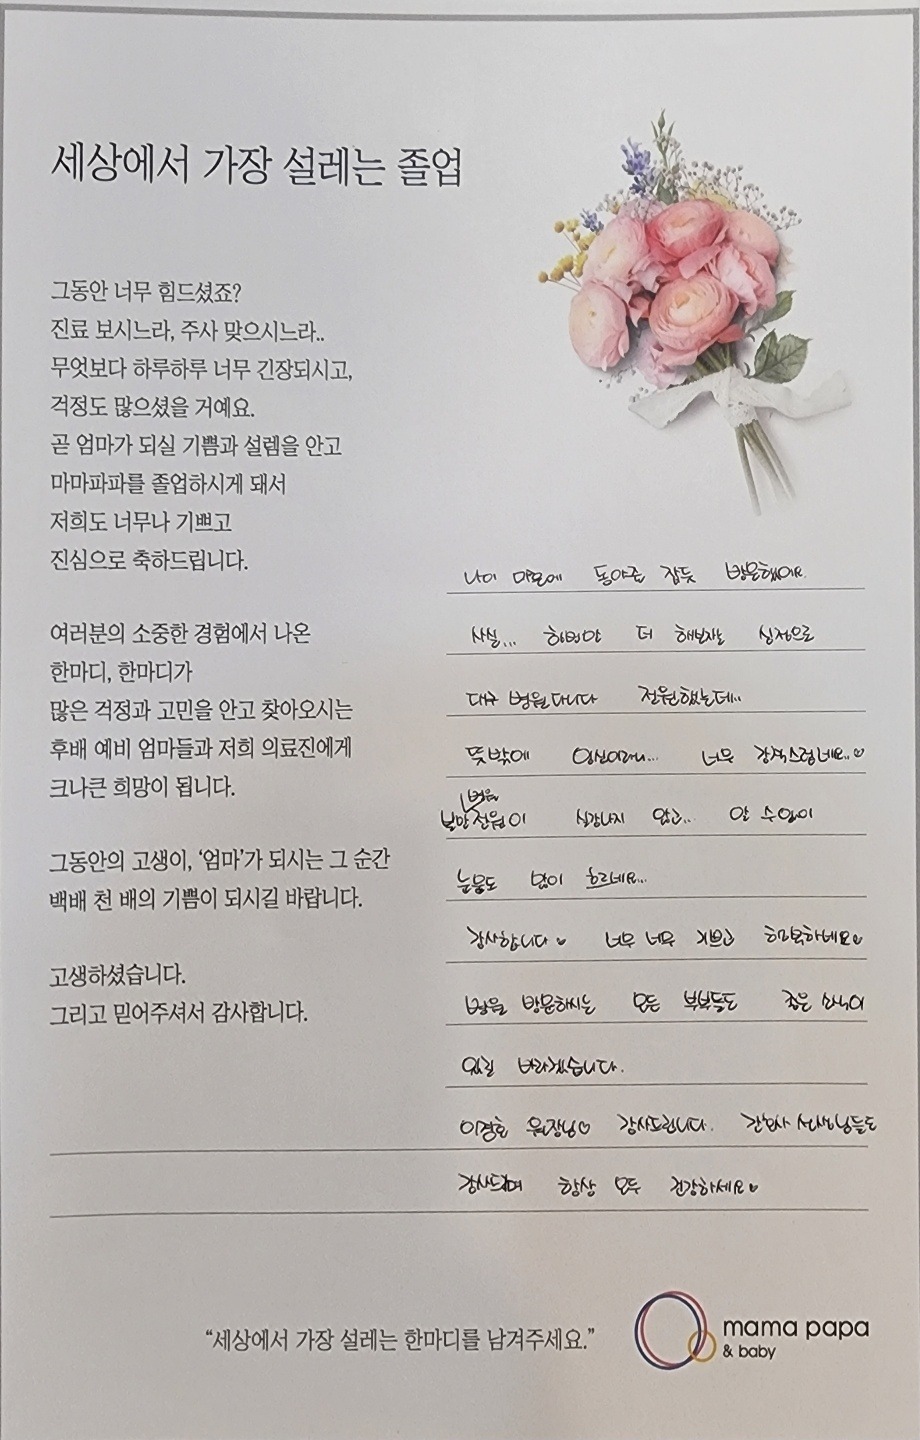 세상에서 가장 설레는 졸업
그동안 너무 힘드셨죠?
진료 보시느라, 주사 맞으시느라..
무엇보다 하루하루 너무 긴장되시고,
걱정도 많으셨을 거예요.
곧 엄마가 되실 기쁨과 설렘을 안고
마마파파를 졸업하시게 돼서
저희도 너무나 기쁘고
진심으로 축하드립니다.
여러분의 소중한 경험에서 나온
한마디, 한마디가
많은 걱정과 고민을 안고 찾아오시는
후배 예비 엄마들과 저희 의료진에게
크나큰 희망이 됩니다.
그동안의 고생이, ‘엄마’가 되시는 그 순간
백배 천 배의 기쁨이 되시길 바랍니다.
고생하셨습니다.
그리고 믿어주셔서 감사합니다.
나이 마흔에 동아줄 잡듯 방문했어요.
사실... 한번만 더 해보자는 심정으로
대구 병원다니다 전원했는데..
뜻밖에 임신이라니... 너무 감격스럽네요..♡
병원
실감나지 않고.. 알 수 없이
눈물도 많이 흐르네요...
감사합니다♡ 너무 너무 기쁘고 행복하네요♡
병원 방문하시는 모든 부부들도 좋은 소식이
있길 바라겠습니다.
이경호 원장님♡ 감사드립니다. 간호사 선생님들도
감사드리며 항상 모두 건강하세요♡
“세상에서 가장 설레는 한마디를 남겨주세요.”
mama papa
& baby